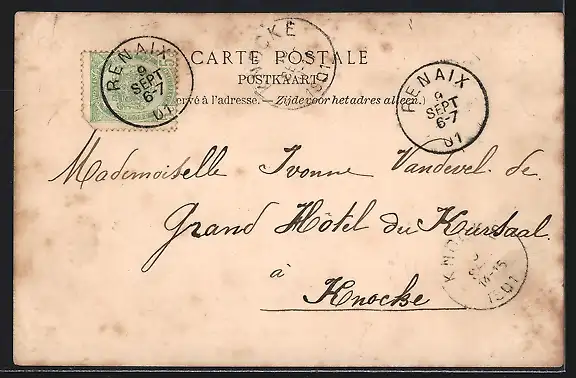 CARTE POSTALE
POSTKAART
ervé à l'adresse. — Zijde voor het adres alleen.)
RENAIX
9
SEPT
6-7
01
KNOCKE
1901
RENAIX
9
SEPT
6-7
01
Mademoiselle Ivonne Vandevel. de.
Grand Hôtel du Kursaal
à
Knocke
14-15
1901